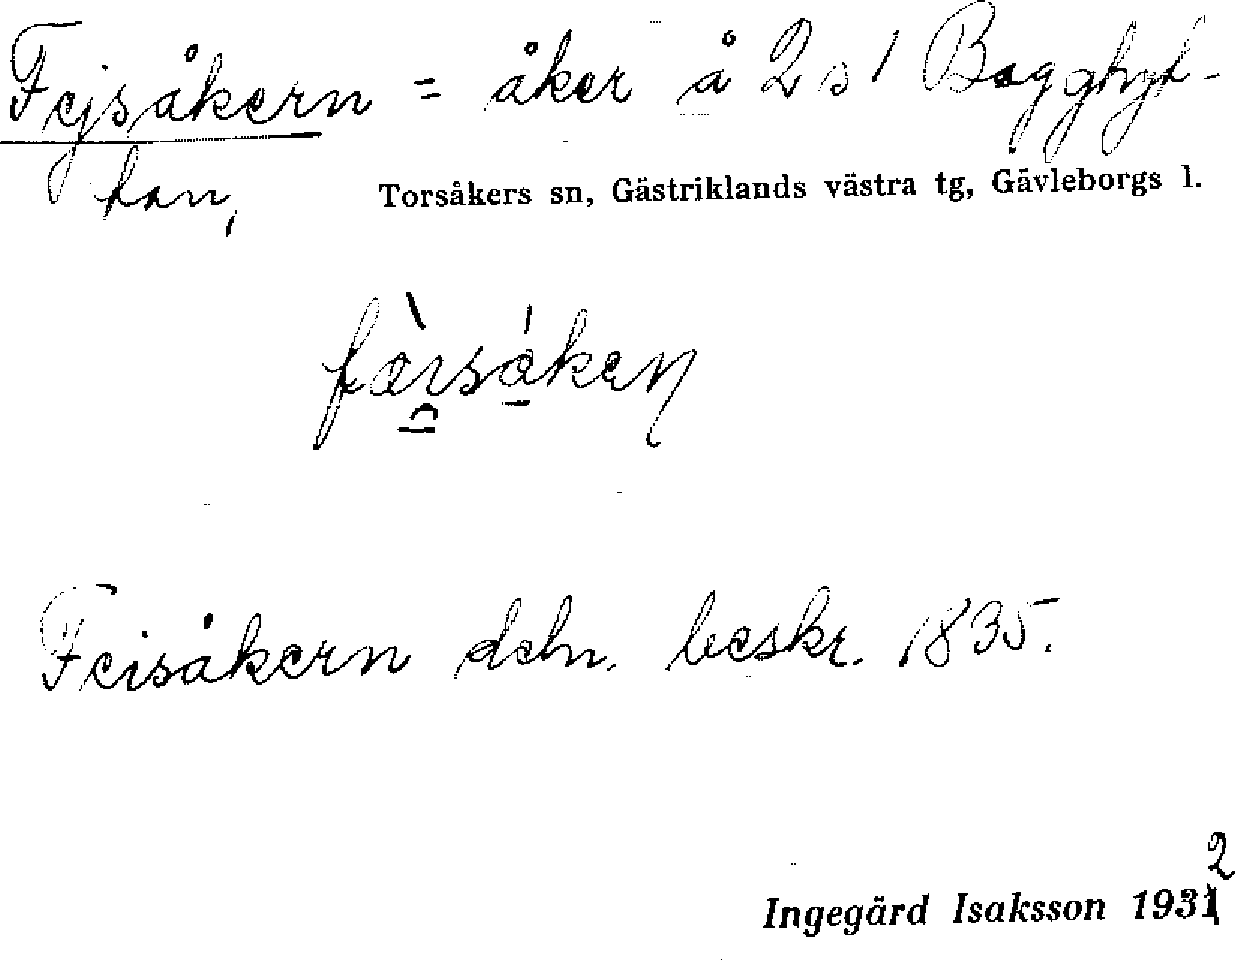 Fejsåkern = åker å 2 s 1 Bagghyt-
tan, Torsåkers sn, Gästriklands västra tg, Gävleborgs l.
Feisåkern deln. beskr. 1835.
Ingegärd Isaksson 1932